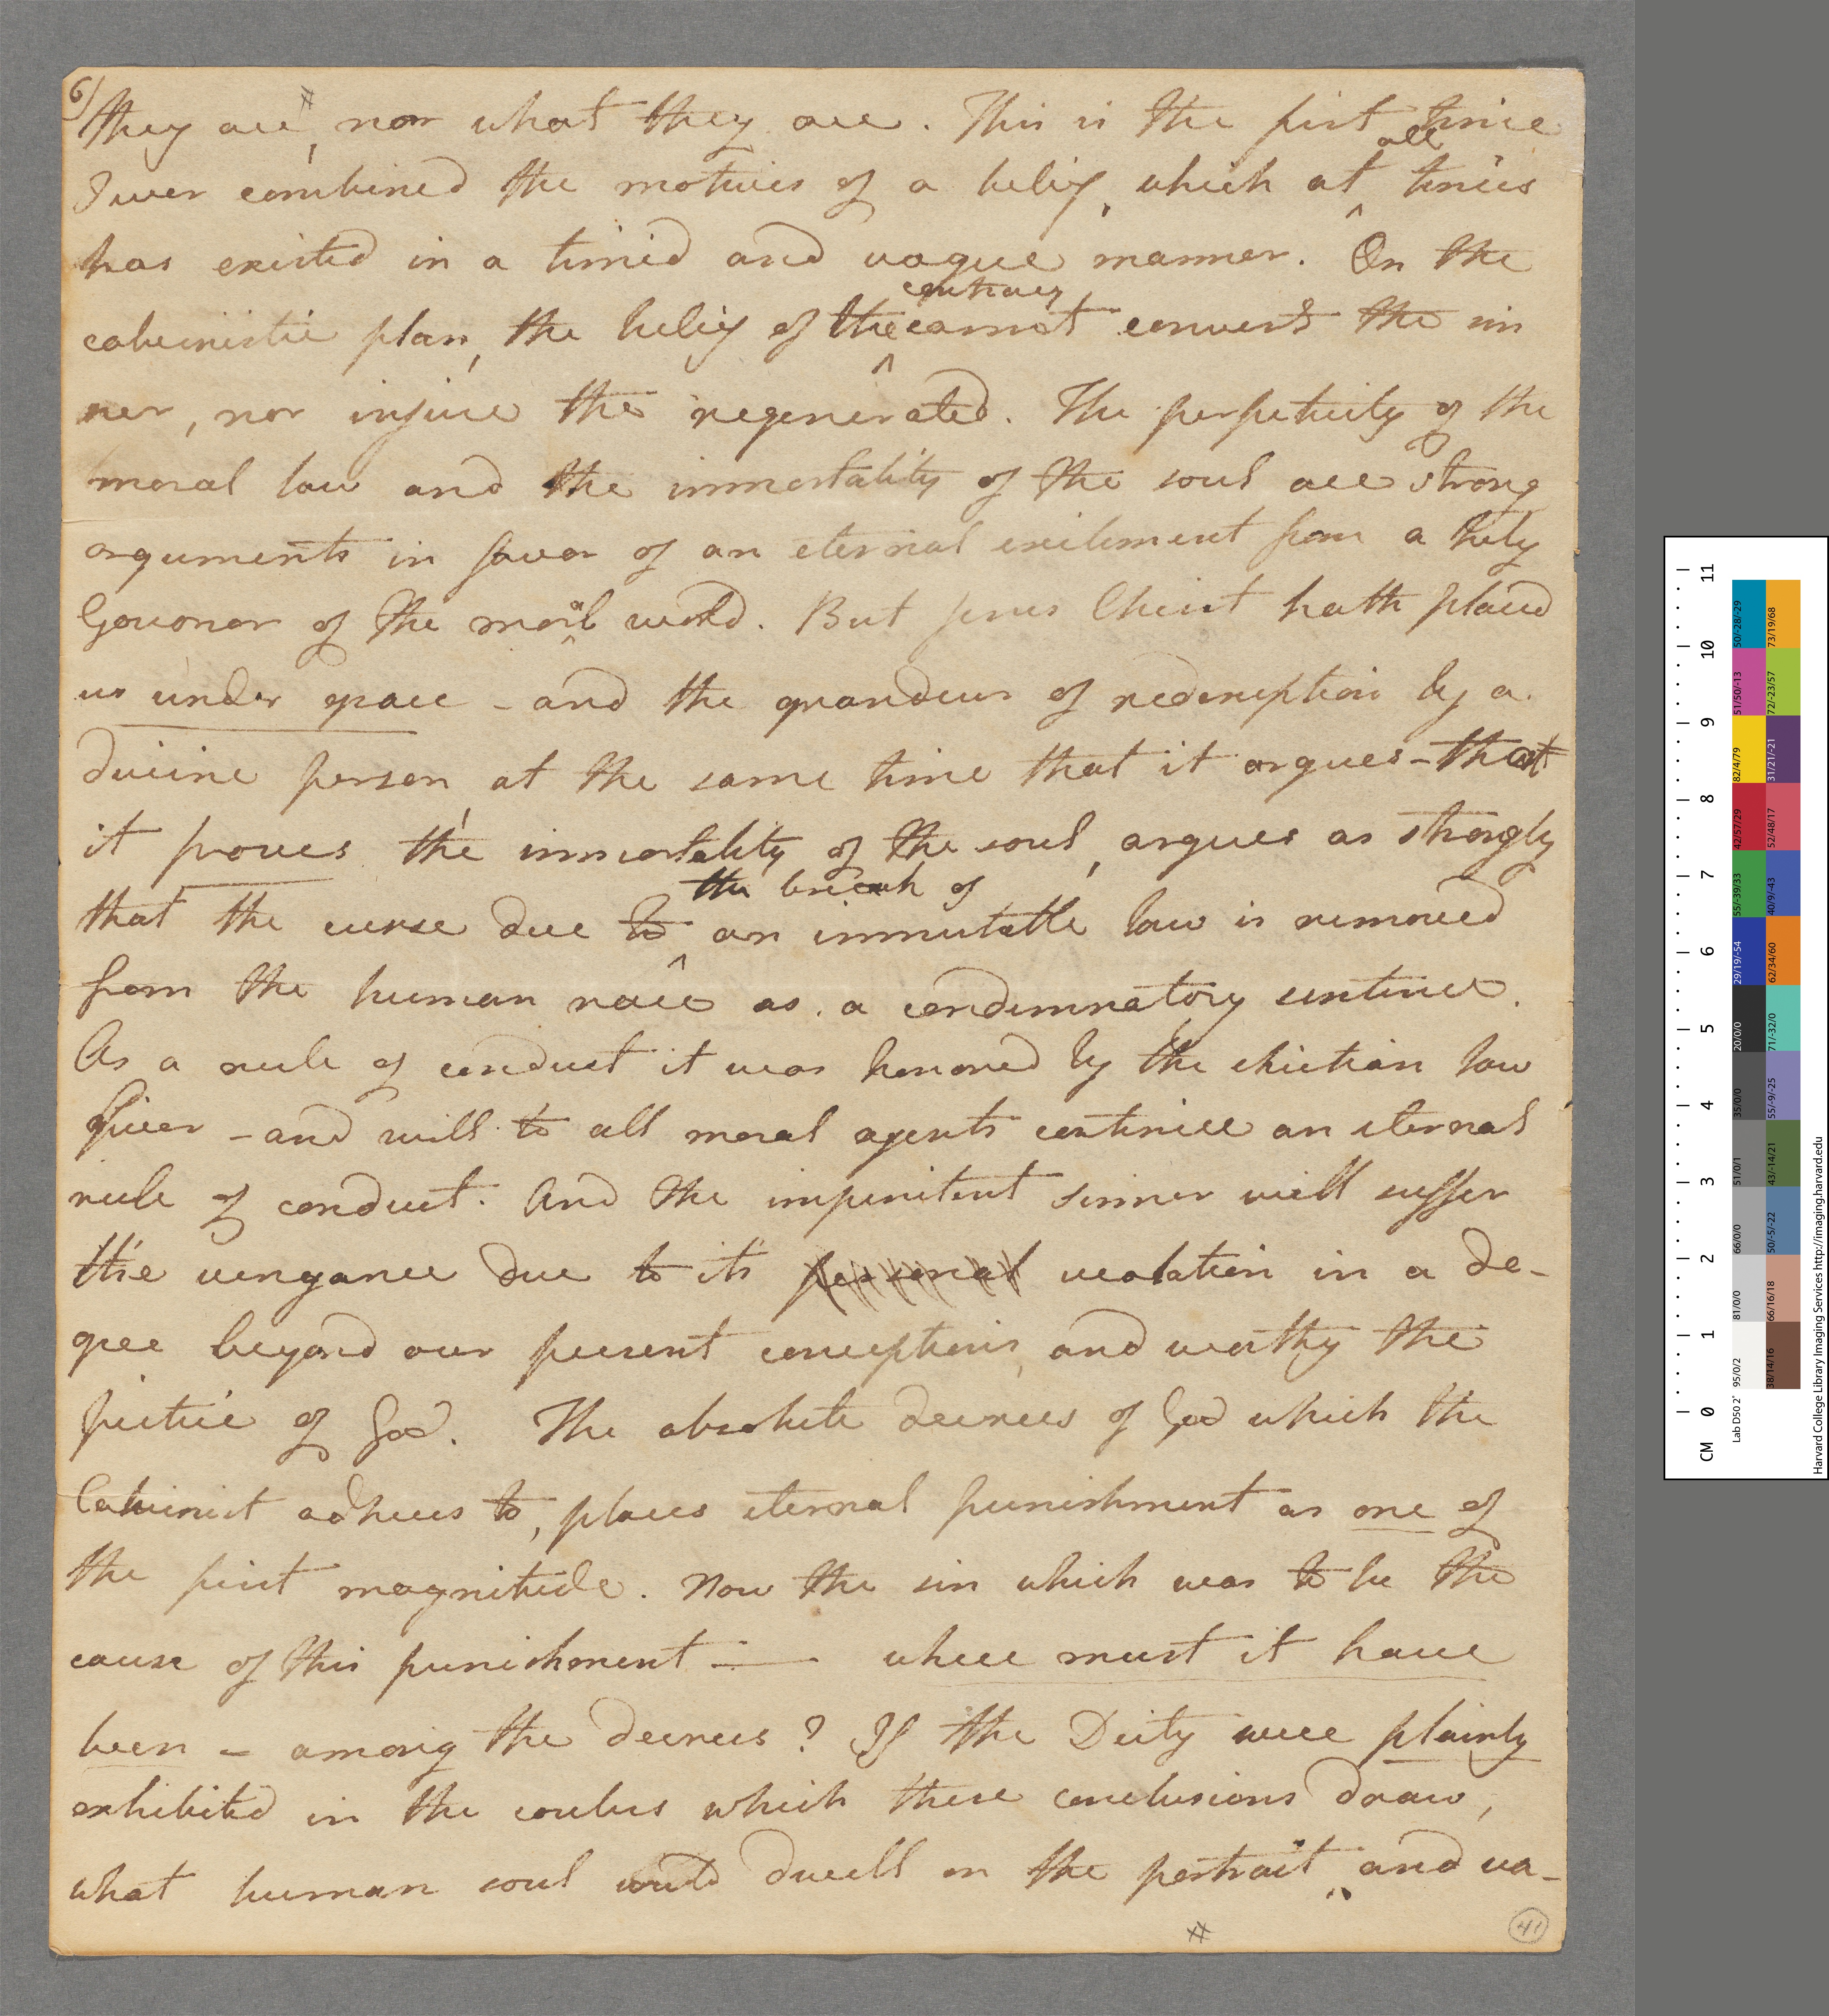 6)
they are, nor what they are. This is the first time
I ever combined the motives of a belief, which at all times
has existed in a timid and vague manner. On the
calvinistic plan, the belief of the contrary cannot convert the sin
ner, nor injure the regenerated. The perpetuity of the
moral law and the immortality of the soul are strong
arguments in favor of an eternal exilement from a holy
Govonor of the moral world. But jesus Christ hath placed
us under grace - and the grandeur of redemption by a
divine person, at the same time that it argues - that
it proves the immortality of the soul, argues as strongly
that the curse due to the breach of an immutable law is removed
from the human race as a condemnatory sentence.
As a rule of conduct it was honored by the christian law
giver - and will to all moral agents continue an eternal
rule of conduct. And the impenitent sinner will suffer
the vengance due to it's personal violation in a de-
gree beyond our present conceptions, and worthy the
justice of God. The absolute decrees of God which the
Calvinist adheres to, places eternal punishment as one of
the first magnitude. Now the sin which was to be the
cause of this punishment — where must it have
been - among the decrees? If the Deity were plainly
exhibited in the colours which these conclusions draw,
what human soul could dwell on the portrait, and va-
41
CM 0 1 2 3 4 5 6 7 8 9 10 11
Lab D50 2°
95/0/2 81/0/0 66/0/0 51/0/1 35/0/0 20/0/0 29/19/-54 55/-39/33 42/57/29 82/4/79 51/50/-13 50/-28/-29
38/14/16 66/16/18 50/-5/-22 43/-14/21 55/-9/-25 71/-32/0 62/34/60 40/9/-43 52/48/17 31/21/-21 72/-23/57 73/19/68
Harvard College Library Imaging Services http://imaging.harvard.edu